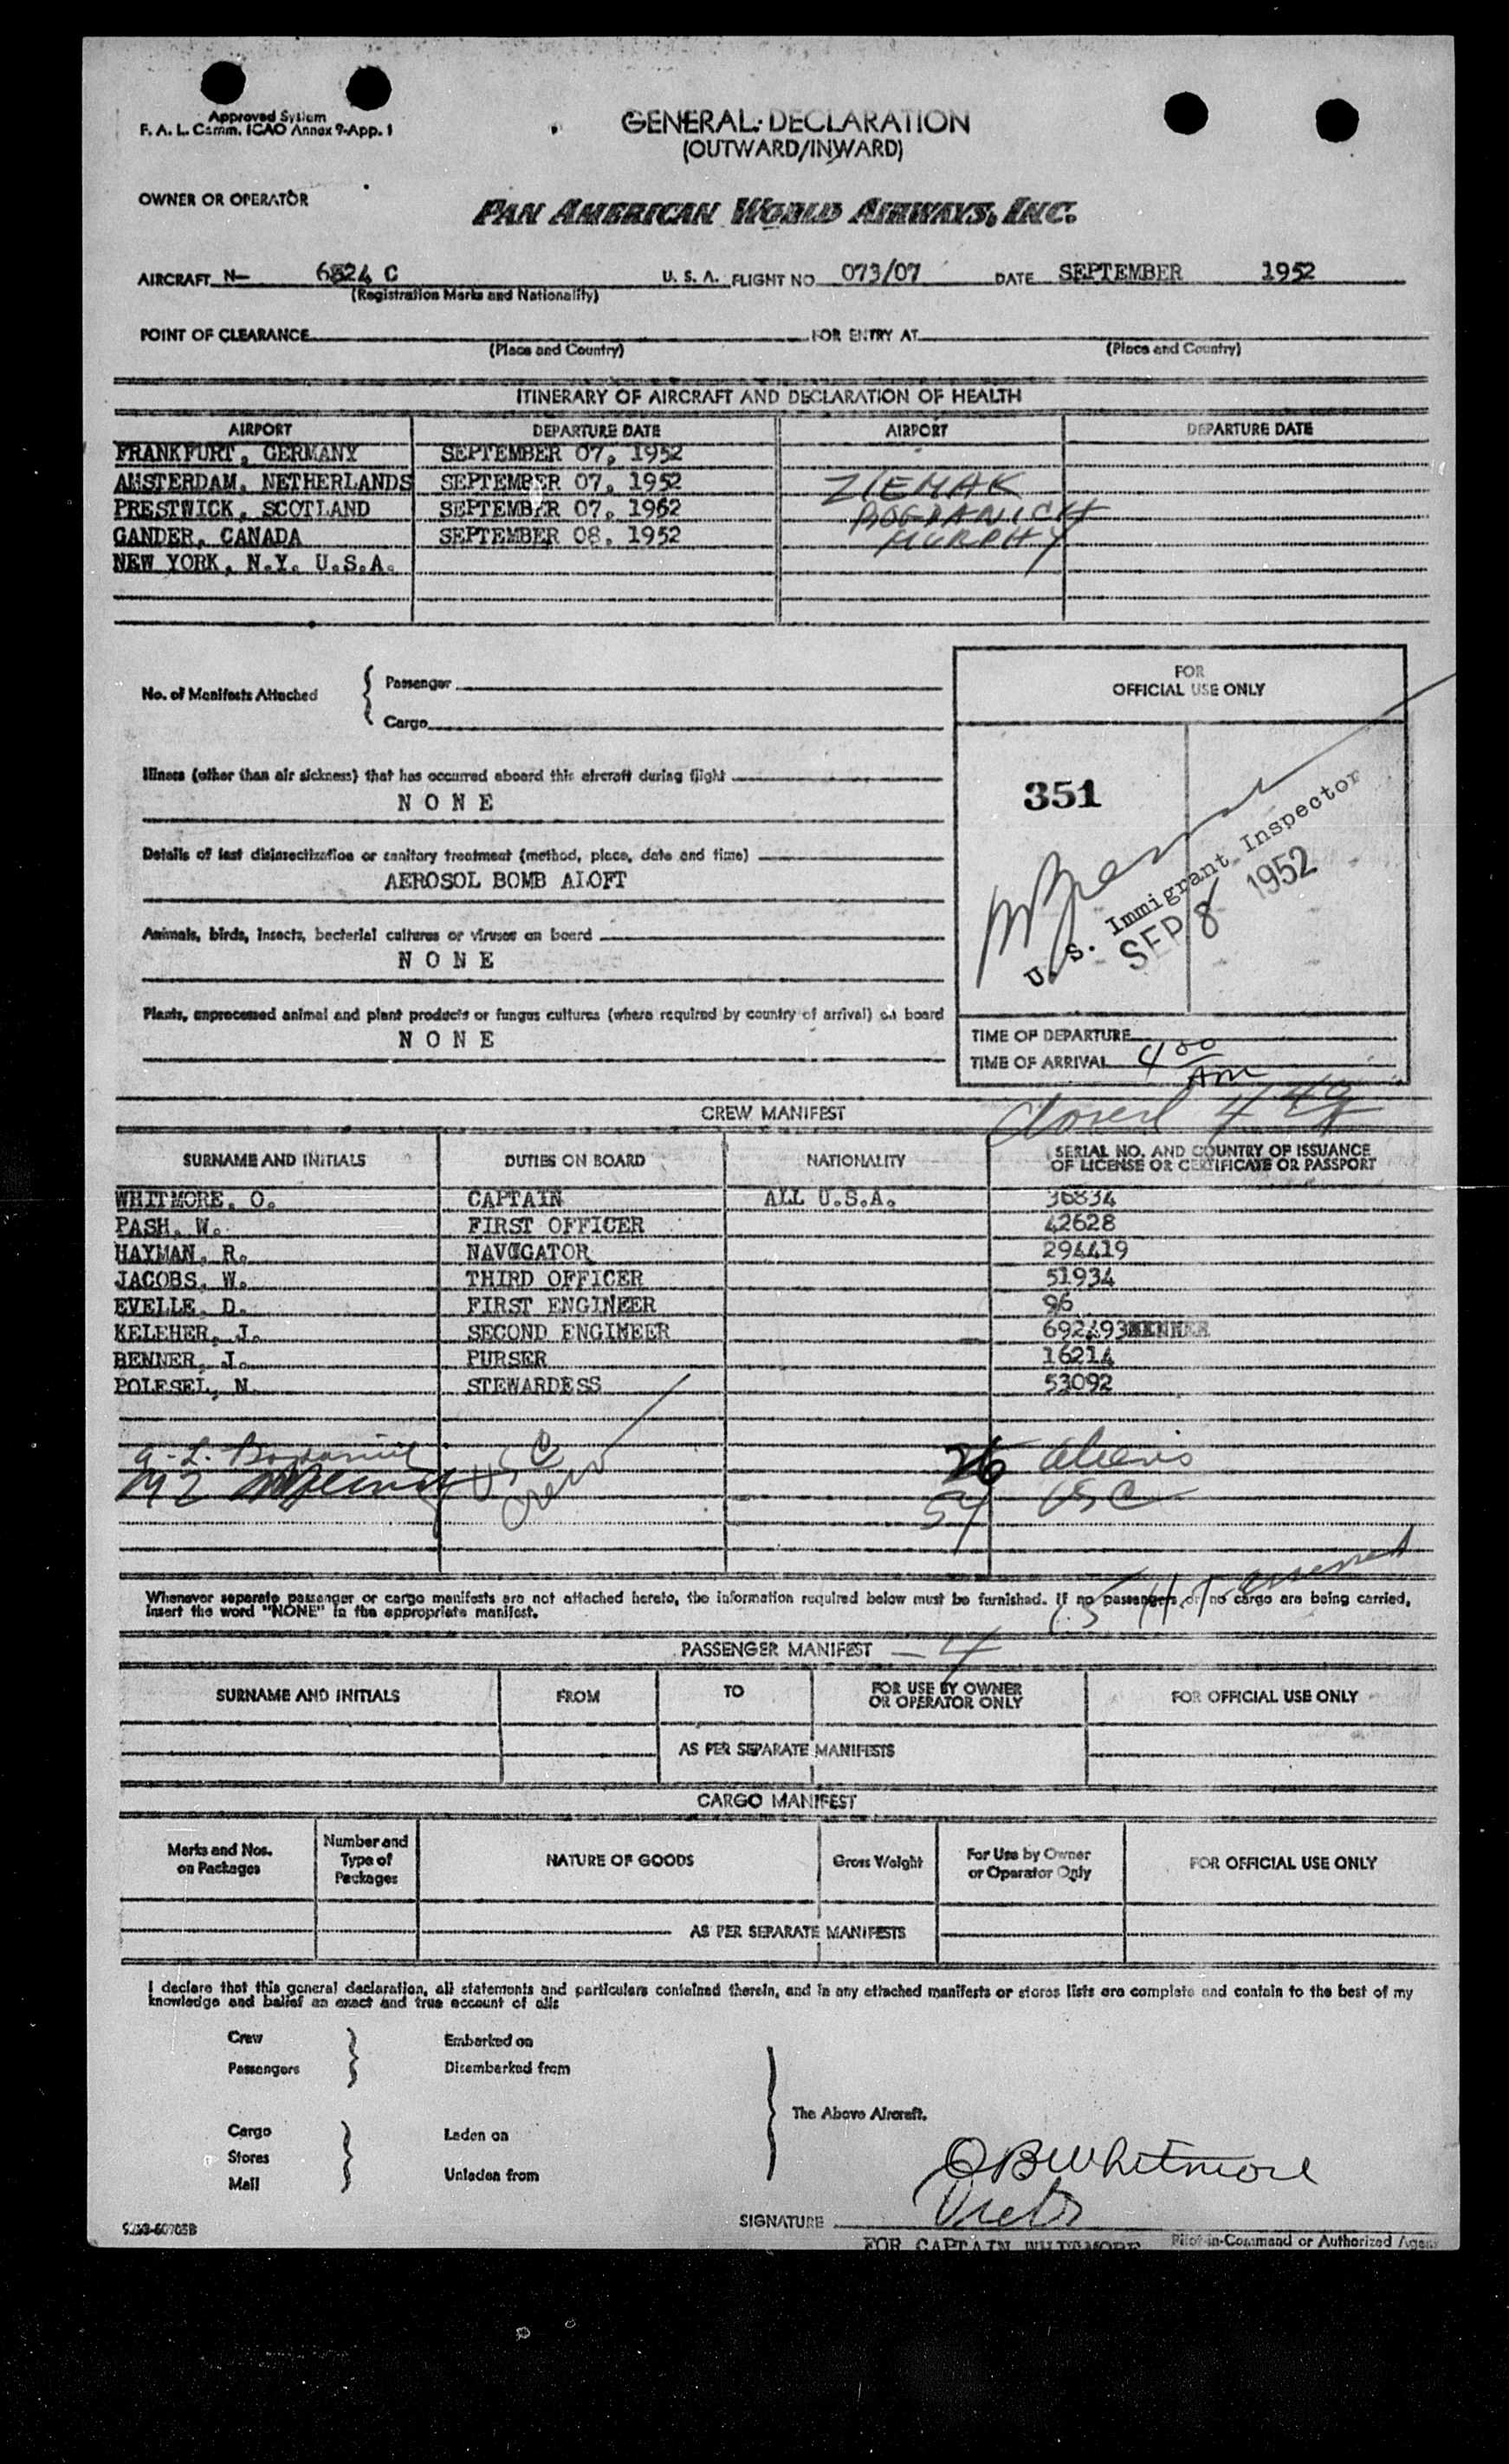 Approved System
F. A. L. Comm. ICAO Annex 9-App. 1
GENERAL DECLARATION
(OUTWARD/INWARD)
OWNER OR OPERATOR
PAN AMERICAN WORLD AIRWAYS, INC.
AIRCRAFT N— 6824 C U. S. A. FLIGHT NO. 073/07 DATE SEPTEMBER 1952
(Registration Marks and Nationality)
POINT OF CLEARANCE FOR ENTRY AT
(Place and Country) (Place and Country)
ITINERARY OF AIRCRAFT AND DECLARATION OF HEALTH
AIRPORT DEPARTURE DATE AIRPORT DEPARTURE DATE
FRANKFURT, GERMANY SEPTEMBER 07, 1952
AMSTERDAM, NETHERLANDS SEPTEMBER 07, 1952 ZIEMAK
PRESTWICK, SCOTLAND SEPTEMBER 07, 1952 BOGDANICH
GANDER, CANADA SEPTEMBER 08, 1952 MURPHY
NEW YORK, N.Y. U.S.A.
No. of Manifests Attached
Passenger
Cargo
FOR
OFFICIAL USE ONLY
Illness (other than air sickness) that has occurred aboard this aircraft during flight
NONE
351
Details of last disinsectization or sanitary treatment (method, place, date and time)
AEROSOL BOMB ALOFT
U. S. Immigrant Inspector
SEP 8 1952
Animals, birds, insects, bacterial cultures or viruses on board
NONE
Plants, unprocessed animal and plant products or fungus cultures (where required by country of arrival) on board
NONE
TIME OF DEPARTURE
TIME OF ARRIVAL 4 00 AM
closed
CREW MANIFEST
SURNAME AND INITIALS DUTIES ON BOARD NATIONALITY SERIAL NO. AND COUNTRY OF ISSUANCE
OF LICENSE OR CERTIFICATE OR PASSPORT
WHITMORE, O. CAPTAIN ALL U.S.A. 36834
PASH, W. FIRST OFFICER 42628
HAYMAN, R. NAVIGATOR 294419
JACOBS, W. THIRD OFFICER 51934
EVELLE, D. FIRST ENGINEER 96
KELEHER, J. SECOND ENGINEER 692493
BENNER, J. PURSER 16214
POLESEL, N. STEWARDESS 53092
USC
Crew
26 aliens
54 USC
Whenever separate passenger or cargo manifests are not attached hereto, the information required below must be furnished. If no passengers or no cargo are being carried,
insert the word "NONE" in the appropriate manifest.
PASSENGER MANIFEST
SURNAME AND INITIALS FROM TO FOR USE BY OWNER
OR OPERATOR ONLY FOR OFFICIAL USE ONLY
AS PER SEPARATE MANIFESTS
CARGO MANIFEST
Marks and Nos.
on Packages
Number and
Type of
Packages
NATURE OF GOODS
Gross Weight
For Use by Owner
or Operator Only
FOR OFFICIAL USE ONLY
AS PER SEPARATE MANIFESTS
I declare that this general declaration, all statements and particulars contained therein, and in any attached manifests or stores lists are complete and contain to the best of my
knowledge and belief an exact and true account of all:
Crew Embarked on
Passengers Disembarked from
The Above Aircraft.
Cargo Laden on
Stores
Mail Unladen from
OB Whitmore
SIGNATURE
FOR CAPTAIN WHITMORE Pilot-in-Command or Authorized Agent